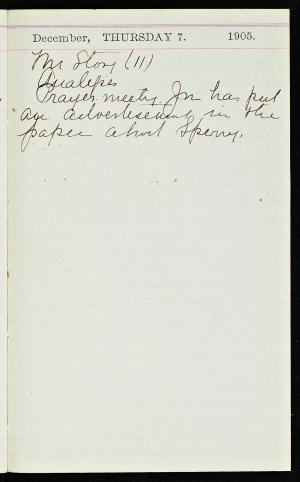 December, THURSDAY 7. 1905.
Mr Story (11)
Prayer meeting Jn has put
an advertisement in the
paper about Sperry.